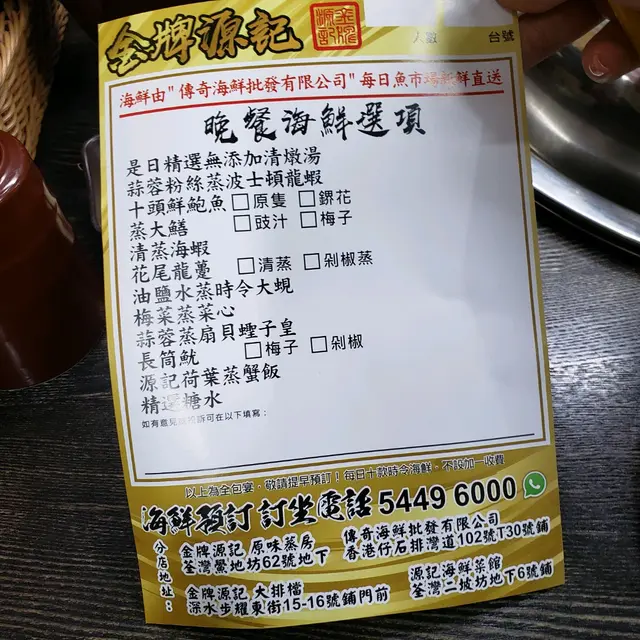 金牌源記
金牌源記
人數 台號
海鮮由"傳奇海鮮批發有限公司"每日魚市場新鮮直送
晚餐海鮮選項
是日精選無添加清燉湯
蒜蓉粉絲蒸波士頓龍蝦
十頭鮮鮑魚 □原隻 □鎅花
蒸大鱔 □豉汁 □梅子
清蒸海蝦
花尾龍躉 □清蒸 □剁椒蒸
油鹽水蒸時令大蜆
梅菜蒸菜心
蒜蓉蒸扇貝蟶子皇
長筒魷 □梅子 □剁椒
源記荷葉蒸蟹飯
精選糖水
如有意見或投訴可在以下填寫：
以上為全包宴，敬請提早預訂！每日十款時令海鮮，不設加一收費
海鮮預訂 訂坐電話 5449 6000
分店地址：
金牌源記 原味蒸房
荃灣鱟地坊62號地下
傳奇海鮮批發有限公司
香港仔石排灣道102號T30號舖
金牌源記 大排檔
深水步耀東街15-16號舖門前
源記海鮮菜館
荃灣二坡坊地下6號舖